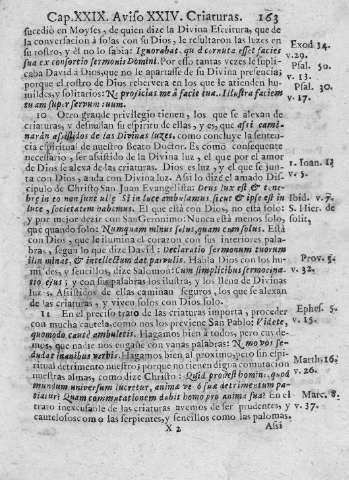 Cap.XXIX. Aviso XXIV. Criaturas. 163
sucedió en Moyses, de quien dize la Divina Escritura, que de
la conversacion á solas con su Dios, le resultaron las luzes en
su rostro, y él no lo sabia: Ignorabat, quod cornuta esset facies
sua ex consortio sermonis Domini. Por esso tantas vezes le suplicaba
David á Dios, que no le apartasse de su Divina presencia;
porque el rostro de Dios reberverá en los que le atienden humildes,
y solitarios: Ne projicias me á facie tua. Illustra faciem
tuam super servum tuum.
Exod. 34.
v. 29.
Psal. 50.
v. 13.
Psal. 30.
v. 17.
10 Otro grande privilegio tienen, los que se alexan de
criaturas, y desnudan su espiritu de ellas, y es, que assi caminarán
assistidos de las Divinas luzes, como concluye la sentencia
espiritual de nuestro Beato Doctor. Es como consequente
necessario, ser assistido de la Divina luz, el que por el amor
de Dios se alexa de las criaturas. Dios es luz, y el que se junta
con Dios, anda con Divina luz. Assi lo dize el amado Discipulo
de Christo San Juan Evangelista: Deus lux est & tenebræ
in eo non sunt ullæ Si in luce ambulamus sicut & ipse est in
luce, societatem habemus. El que está con Dios, no está solo:
y por mejor dezir con San Geronimo: Nunca está menos solo,
que quando solo: Numquam minus solus, quam cum solus. Está
con Dios, que le ilumina el corazon con sus interiores palabras,
segun lo que dize David: Declaratio sermonum tuorum
illuminat, & intellectum dat parvulis. Habla Dios con los humildes,
y sencillos, dize Salomon: Cum simplicibus sermocinatio
ejus; y con sus palabras los ilustra, y los llena de Divinas
luzes. Assistidos de ellas caminan seguros, los que se alexan
de las criaturas, y viven solos con Dios solo.
1. Joan. 1.
v. 5.
Ibid. v. 7.
S. Hier. de
solit.
Prov. 3.
v. 32.
11 En el preciso trato de las criaturas importa, proceder
con mucha cautela, como nos los previene San Pablo: Videte,
quomodo cautè ambuletis. Hagamos bien á todos, pero con cautela,
que nadie nos engañe con vanas palabras: Nemo vos seducat
inanibus verbis. Hagamos bien al proximo, pero sin espiritual
detrimento nuestro; porque no tienen digna comutacion
nuestras almas, como dize Christo: Quid prodest homini, quod
mundum universum lucretur, animæ verò suæ detrimentum patiatur?
Quam commutationem dabit homo pro anima sua? En el
trato inexcusable de las criaturas avemos de ser prudentes, y
cautelosos como las serpientes, y sencillos como las palomas.
Ephes. 5.
v. 15.
Matth. 16.
v. 26.
Marc. 8.
v. 37.
X 2 Assi